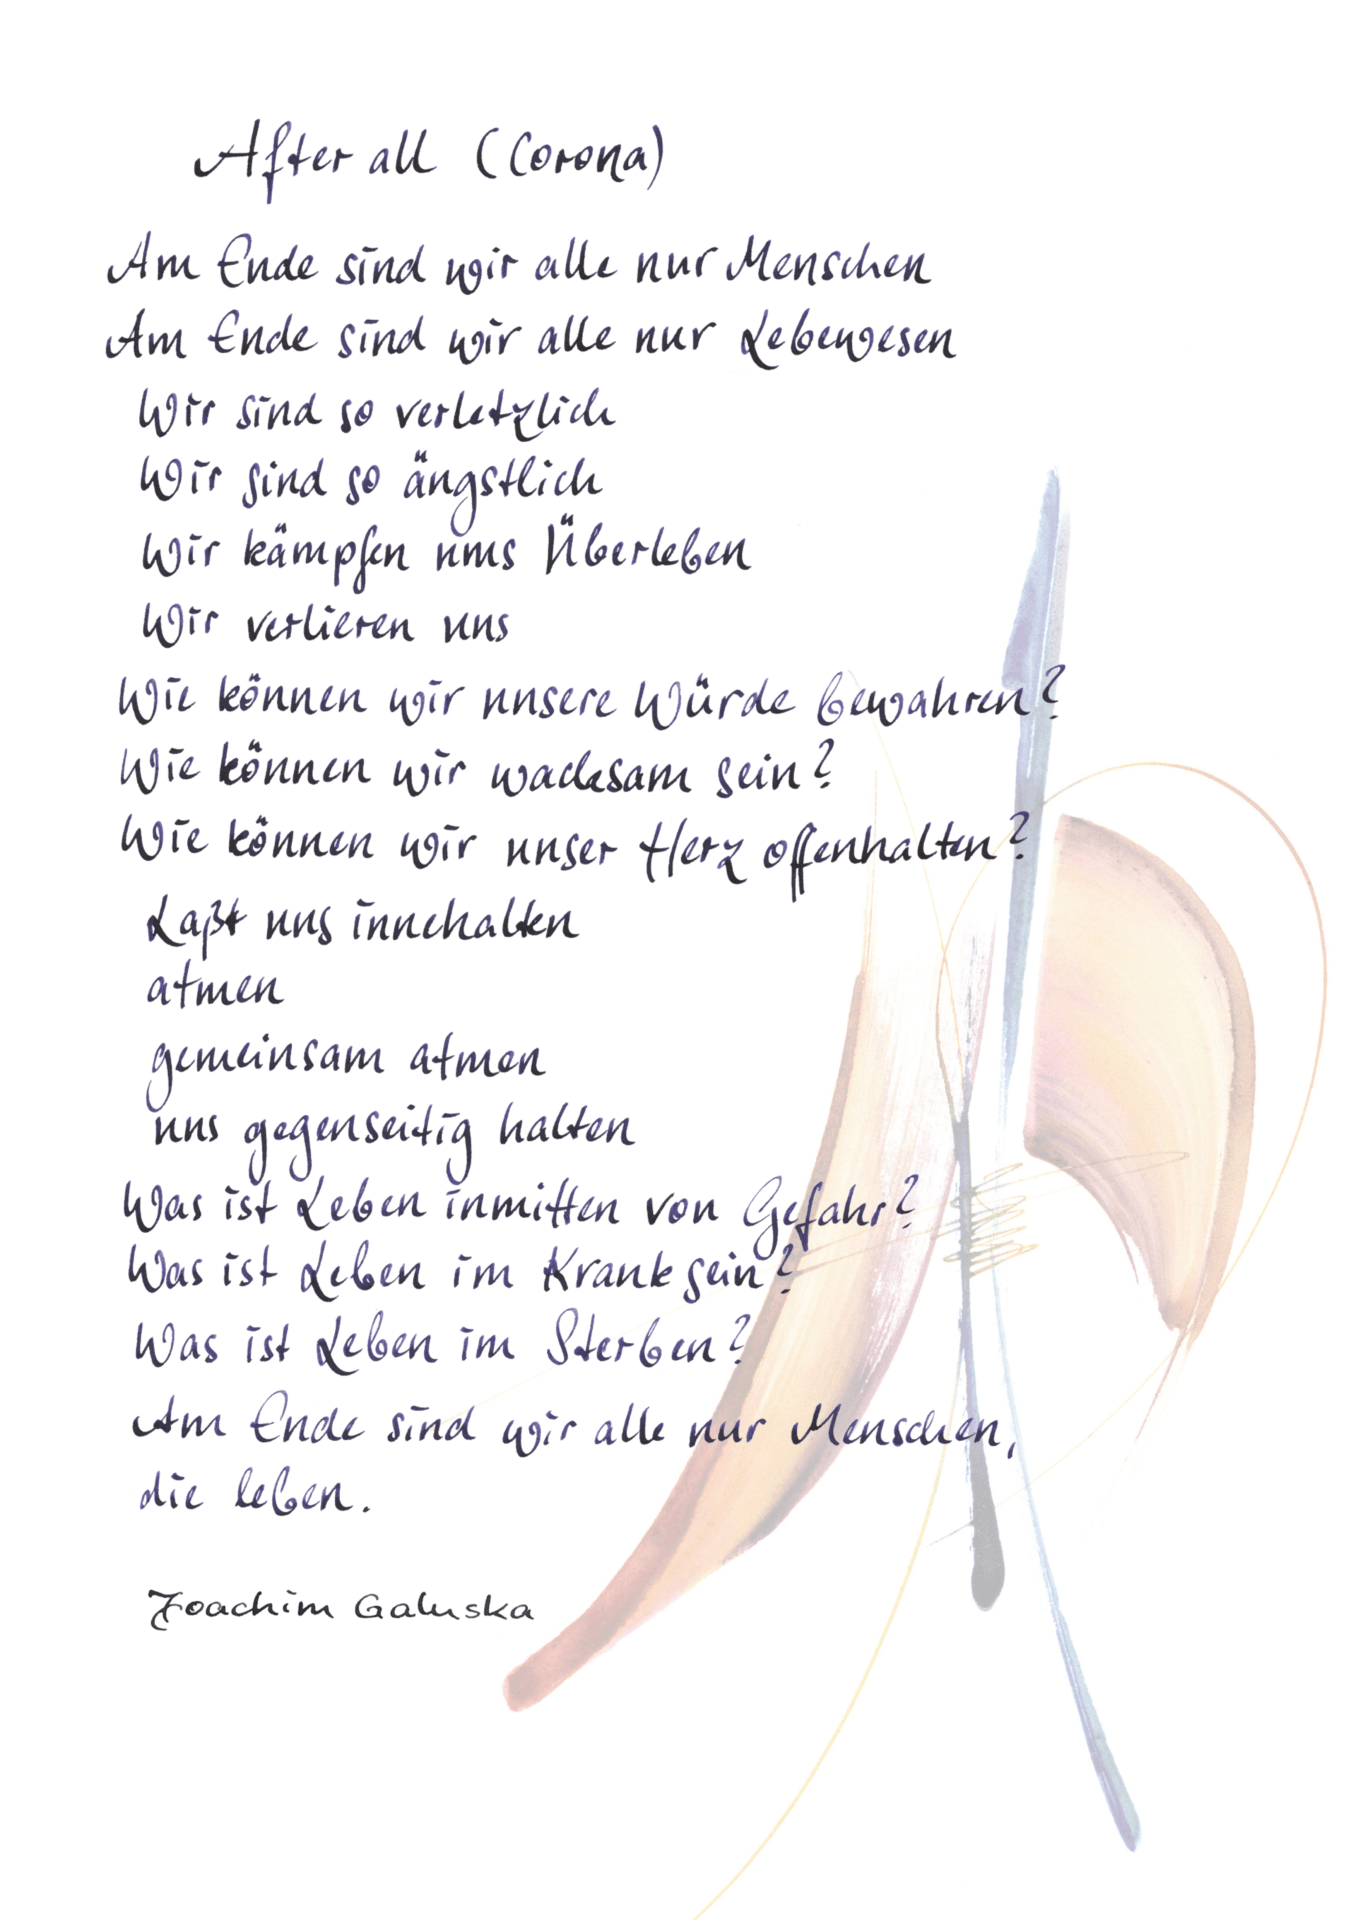 After all (Corona)
Am Ende sind wir alle nur Menschen
Am Ende sind wir alle nur Lebewesen
Wir sind so verletzlich
Wir sind so ängstlich
Wir kämpfen ums Überleben
Wir verlieren uns
Wie können wir unsere Würde bewahren?
Wie können wir wachsam sein?
Wie können wir unser Herz offenhalten?
Laßt uns innehalten
atmen
gemeinsam atmen
uns gegenseitig halten
Was ist Leben inmitten von Gefahr?
Was ist Leben im Krank sein?
Was ist Leben im Sterben?
Am Ende sind wir alle nur Menschen,
die leben.
Joachim Galuska